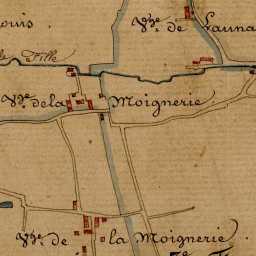 ouis.
Vge. de Launa
le Fille
Vge. de la Moignerie
Vge. de la Moignerie